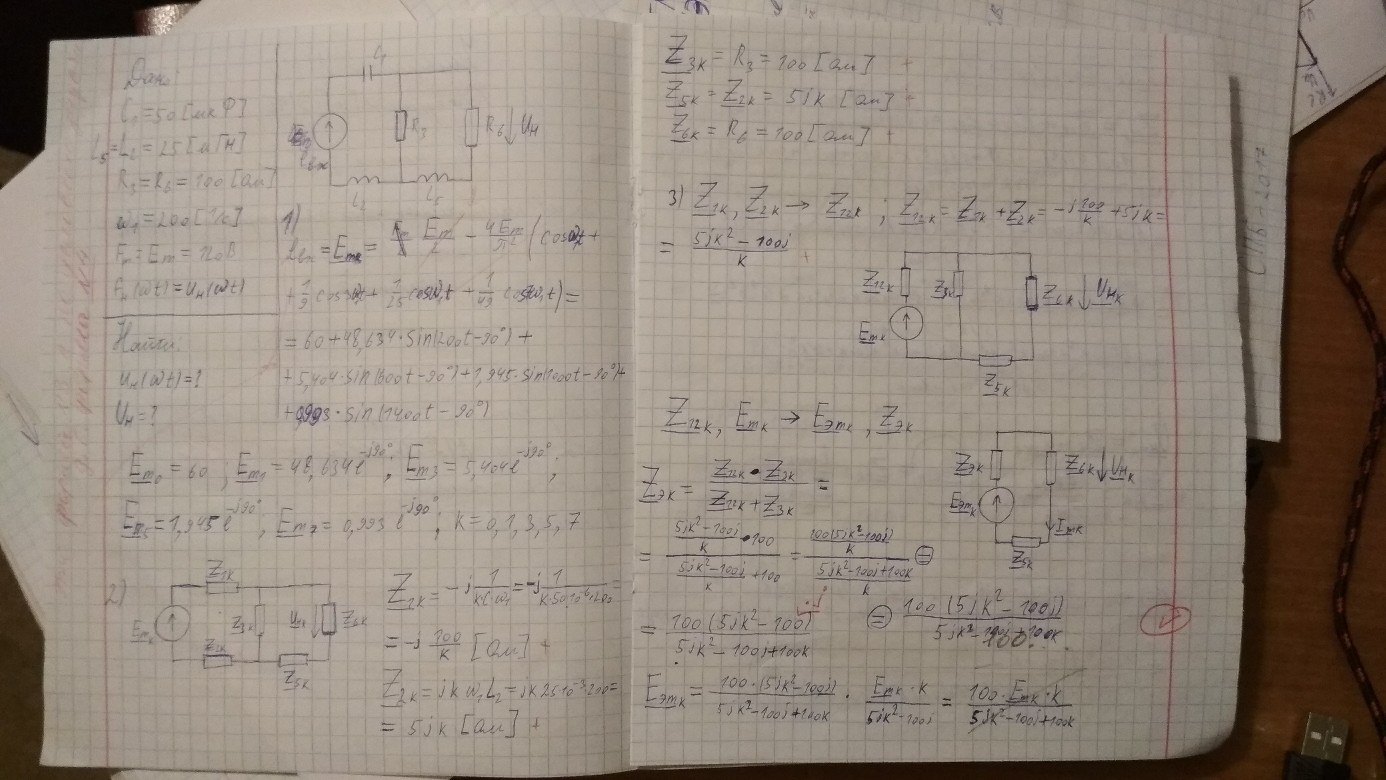 Дано
C₁ = 50 [мкФ]
L₅ = L₂ = 25 [мГн]
R₃ = R₆ = 100 [Ом]
ω₁ = 200 [1/с]
Fₘ = Eₘ = 120В
fₙ(ωt) = uₙ(ωt)
Найти
uₙ(ωt) = ?
Uₙ = ?
C₁
R₃
R₆ ↓ Uₙ
eвх
L₂
L₅
1)
eвх = Eₘₖ = Eₘ/2 - 4Eₘ/π² (cosω₁t +
+ 1/9 cos3ω₁t + 1/25 cos5ω₁t + 1/49 cos7ω₁t) =
= 60 + 48,634·sin(200t-90°) +
+ 5,404·sin(600t-90°) + 1,945·sin(1000t-90°) +
+ 0,993·sin(1400t-90°)
Eₘ₀ = 60 ; Eₘ₁ = 48,634 e^(-j90°) ; Eₘ₃ = 5,404 e^(-j90°) ;
Eₘ₅ = 1,945 e^(-j90°) , Eₘ₇ = 0,993 e^(-j90°) ; K = 0, 1, 3, 5, 7
2)
Z₁ₖ
Eₘₖ
Z₃ₖ
Uₙₖ
Z₆ₖ
Z₂ₖ
Z₅ₖ
Z₁ₖ = -j 1/(k·C·ω₁) = -j 1/(k·50·10⁻⁶·200) =
= -j 100/k [Ом] +
Z₂ₖ = jkω₁L₂ = jk25·10⁻³·200 =
= 5jk [Ом] +
Z₃ₖ = R₃ = 100 [Ом] +
Z₅ₖ = Z₂ₖ = 5jk [Ом] +
Z₆ₖ = R₆ = 100 [Ом] +
3) Z₁ₖ, Z₂ₖ → Z₁₂ₖ ; Z₁₂ₖ = Z₁ₖ + Z₂ₖ = -j 100/k + 5jk =
= (5jk² - 100j)/k +
Z₁₂ₖ
Z₃ₖ
Z₆ₖ ↓ Uₙₖ
Eₘₖ
Z₅ₖ
Z₁₂ₖ, Eₘₖ → Eэmₖ, Zэₖ
Zэₖ
Z₆ₖ ↓ Uₙₖ
Eэmₖ
Iₘₖ
Z₅ₖ
Zэₖ = (Z₁₂ₖ · Z₃ₖ)/(Z₁₂ₖ + Z₃ₖ) =
= ((5jk²-100j)/k · 100)/((5jk²-100j)/k + 100) = (100(5jk²-100j)/k)/((5jk²-100j+100k)/k) =
= 100(5jk²-100j)/(5jk²-100j+100k) = 100(5jk²-100j)/(5jk²-100j+100k)
100
Eэmₖ = 100·(5jk²-100j)/(5jk²-100j+100k) · Eₘₖ·k/(5jk²-100j) = 100·Eₘₖ·k/(5jk²-100j+100k)
СПБ - 2017